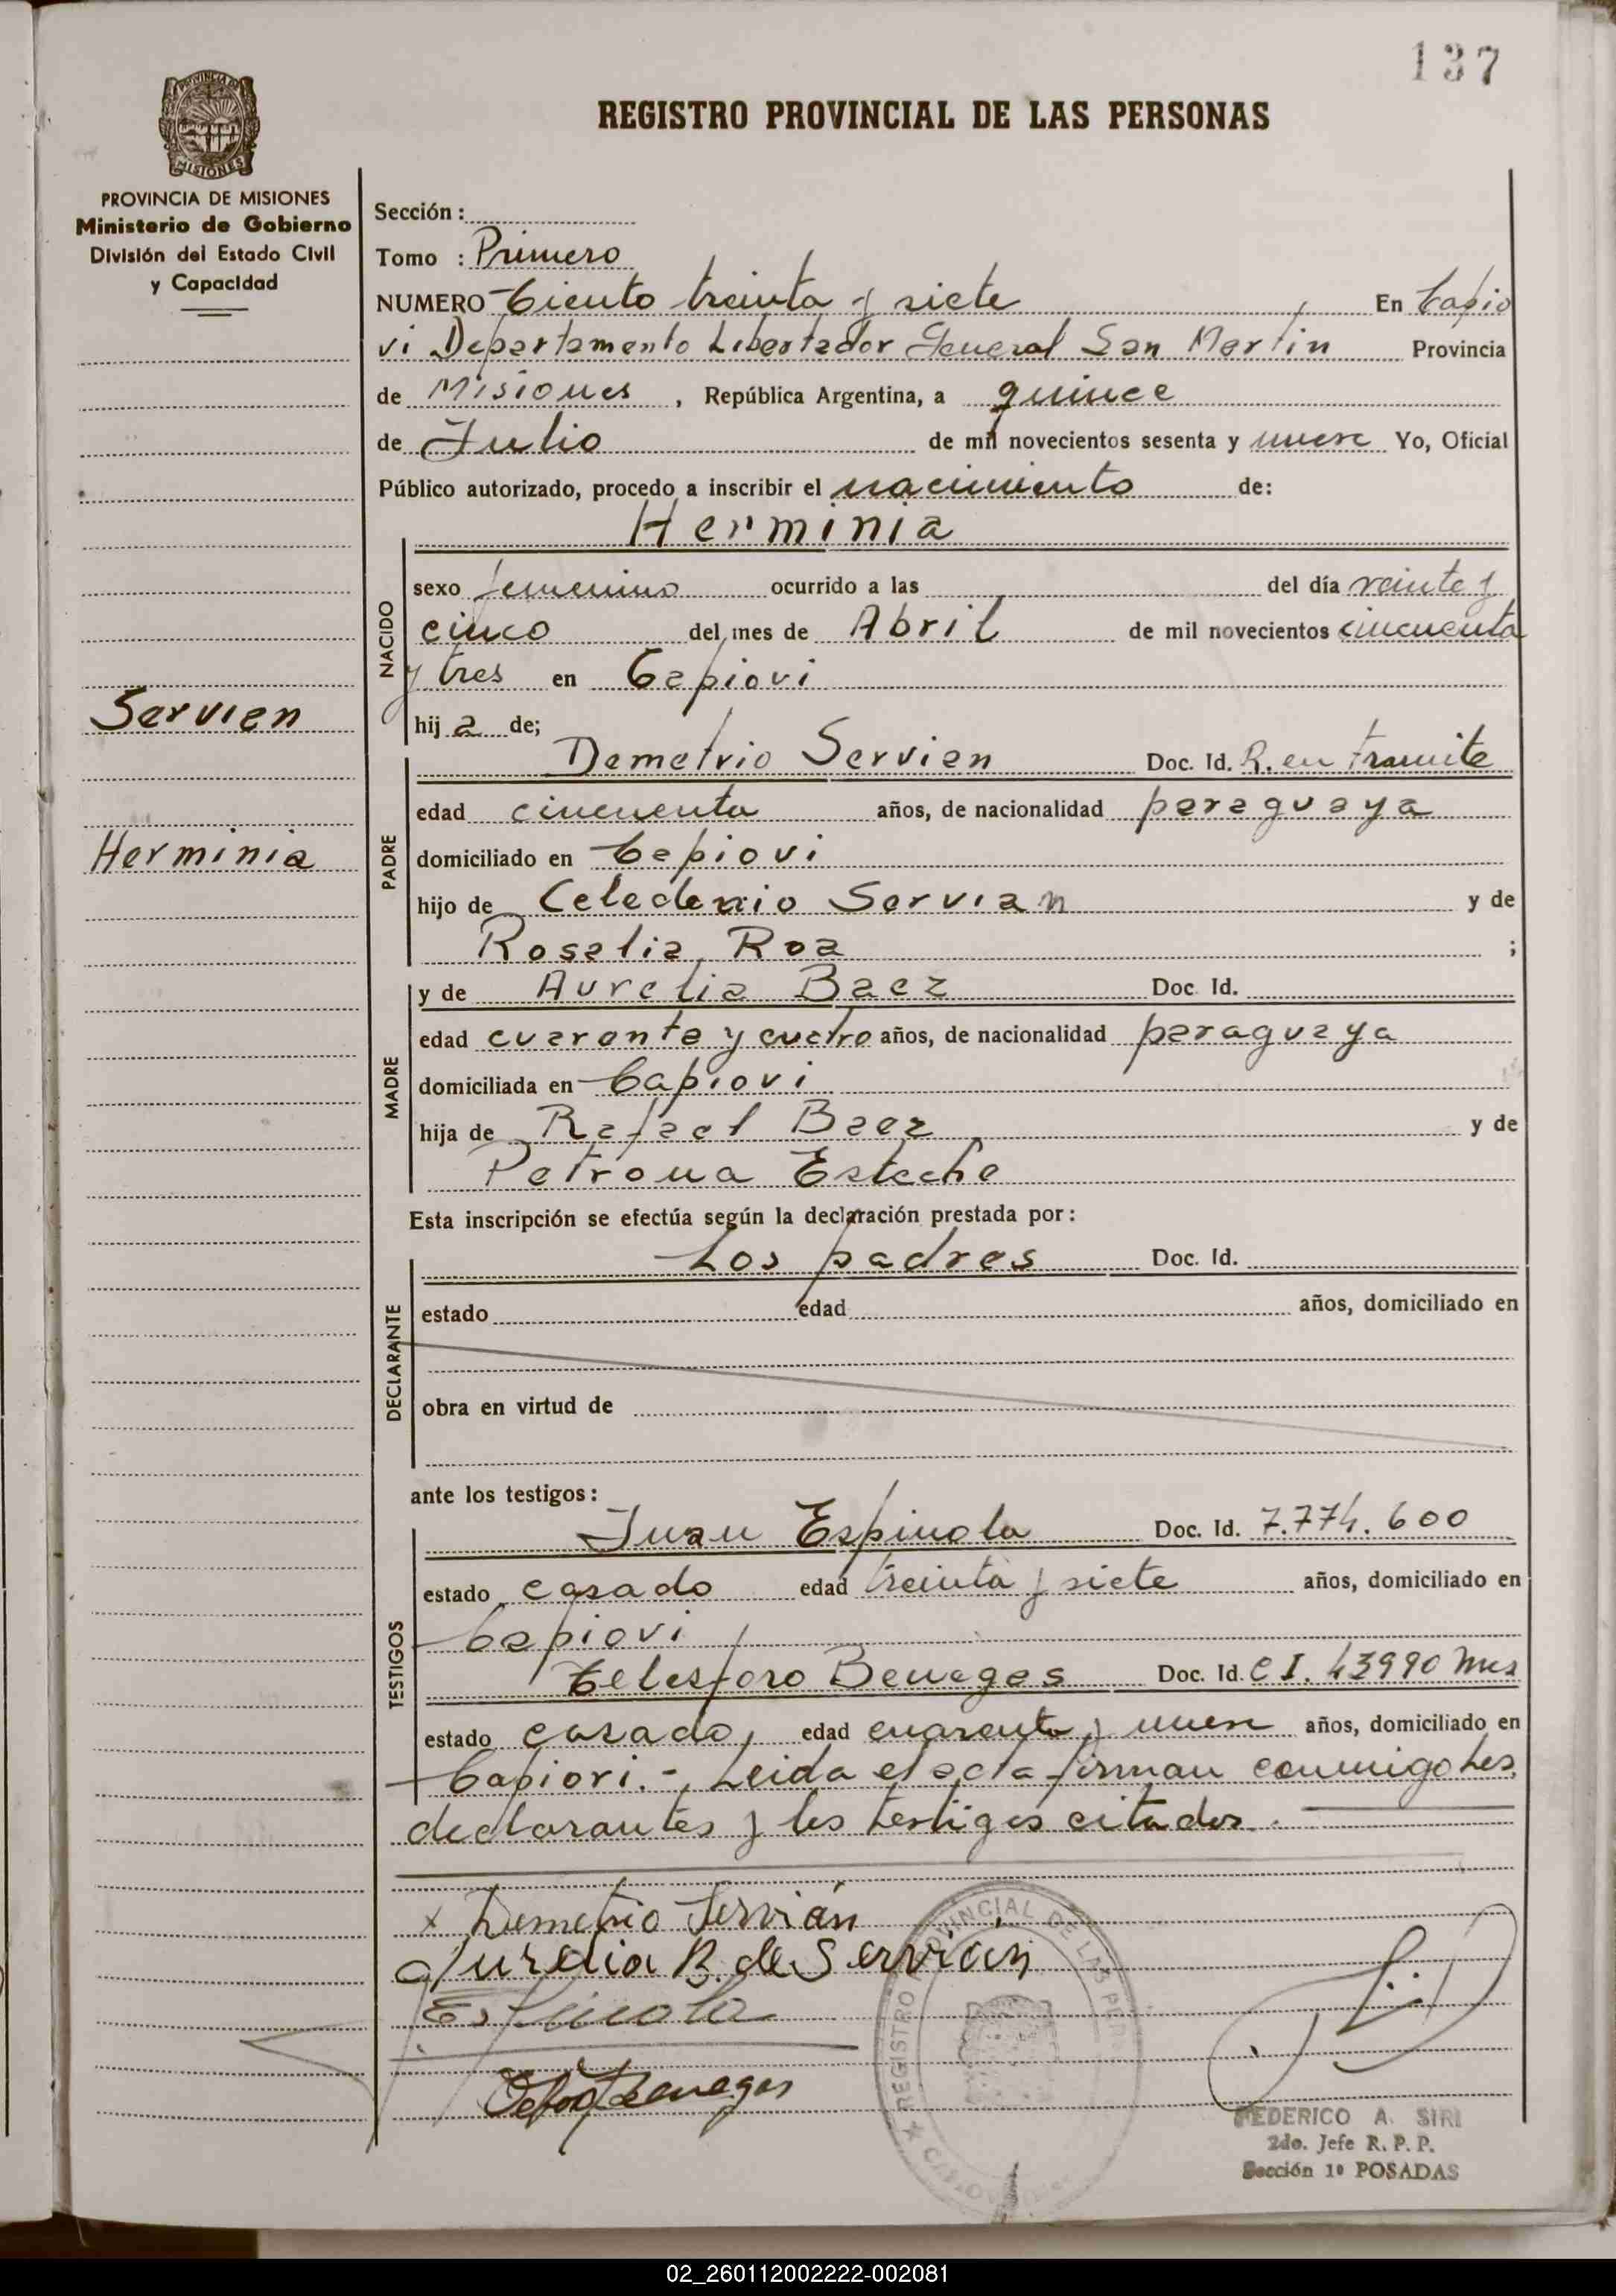 137
REGISTRO PROVINCIAL DE LAS PERSONAS
PROVINCIA DE MISIONES
Ministerio de Gobierno
División del Estado Civil
y Capacidad
Sección :
Tomo : Primero
NUMERO Ciento treinta y siete En Capio
vi Departamento Libertador General San Martin Provincia
de Misiones , República Argentina, a quince
de Julio de mil novecientos sesenta y nueve Yo, Oficial
Público autorizado, procedo a inscribir el nacimiento de:
Herminia
NACIDO
sexo femenino ocurrido a las del día veinte y
cinco del mes de Abril de mil novecientos cincuenta
y tres en Capiovi
Servien
Herminia
hij a de;
PADRE
Demetrio Servien Doc. Id. R. en tramite
edad cincuenta años, de nacionalidad paraguaya
domiciliado en Capiovi
hijo de Celedonio Servian y de
Rosalia Roa ;
MADRE
y de Aurelia Baez Doc. Id.
edad cuarenta y cuatro años, de nacionalidad paraguaya
domiciliada en Capiovi
hija de Rafael Baez y de
Petrona Esteche
Esta inscripción se efectúa según la declaración prestada por:
DECLARANTE
Los padres Doc. Id.
estado edad años, domiciliado en
obra en virtud de
ante los testigos:
TESTIGOS
Juan Espinola Doc. Id. 7.774.600
estado casado edad treinta y siete años, domiciliado en
Capiovi
Telesforo Benegas Doc. Id. C I. 43990 Mns
estado casado, edad cuarenta y nueve años, domiciliado en
Capiovi.-, Leida el acta firman conmigo Los
declarantes y los testigos citados.
x Demetrio Servián
Aurelia B. de Servián
Espinola
Benegas
REGISTRO PROVINCIAL DE LAS PER
FEDERICO A. SIRI
2do. Jefe R. P. P.
Sección 1º POSADAS
02_260112002222-002081